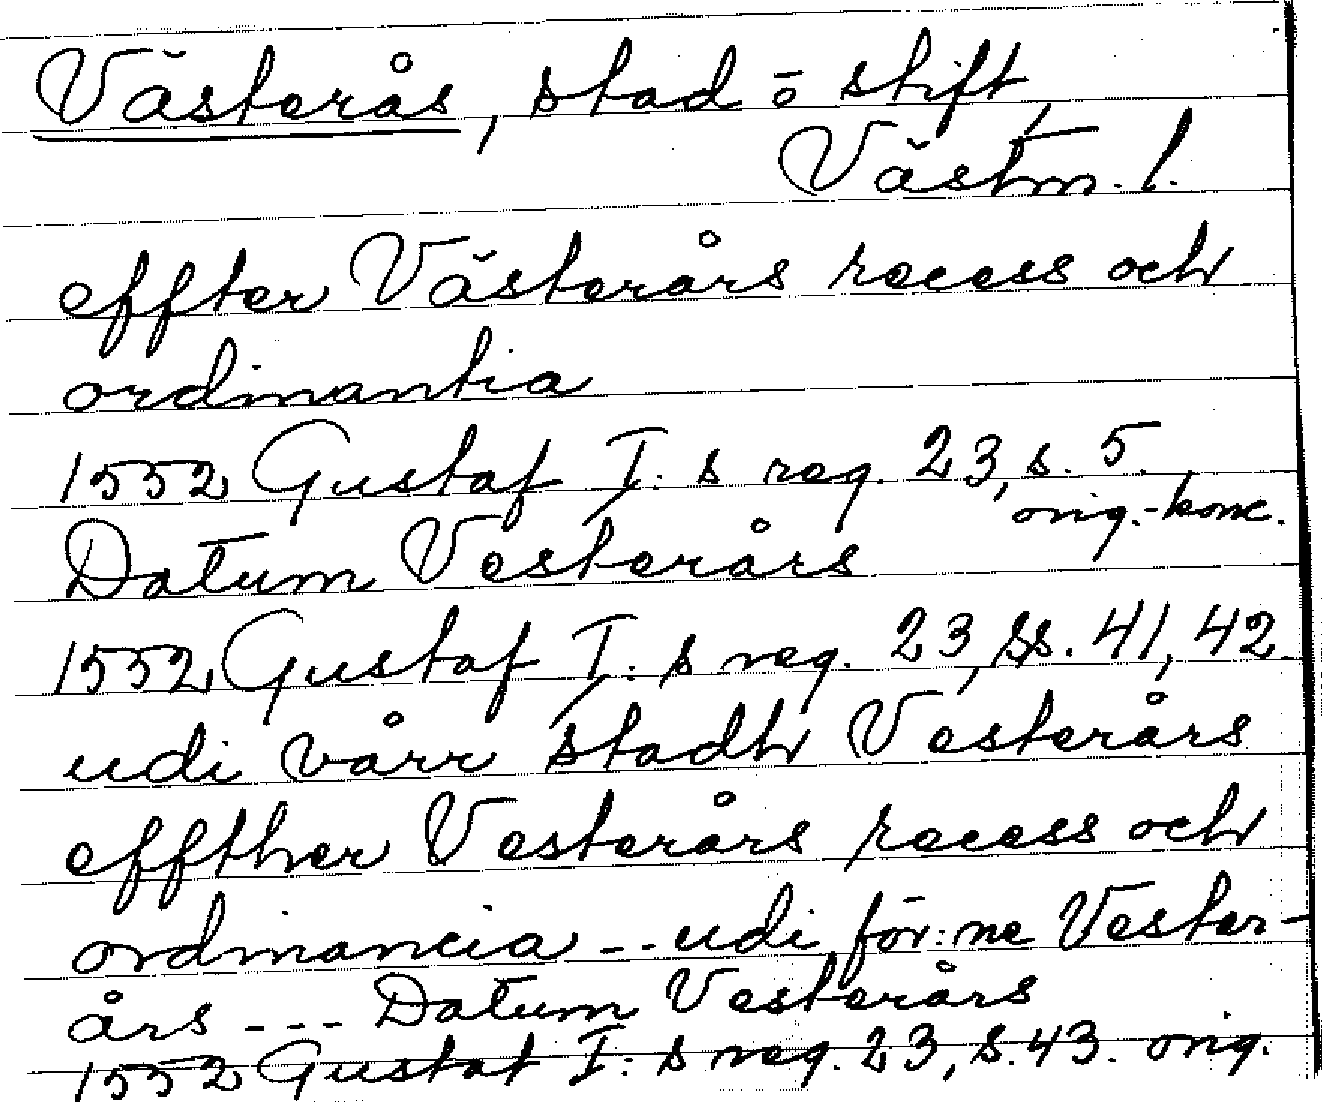 Västerås, stad o stift,
Västm. l.
effter Västerårs recess och
ordinantia
1552 Gustaf I: s reg. 23, s. 5.
orig.-konc.
Datum Vesterårs
1552 Gustaf I: s reg. 23, ss. 41, 42
udi vårr stadh Vesterårs
effther Vesterårs recess och
ordinancia -- udi för:ne Vester-
års --- Datum Vesterårs
1552 Gustaf I: s reg. 23, s. 43. orig.